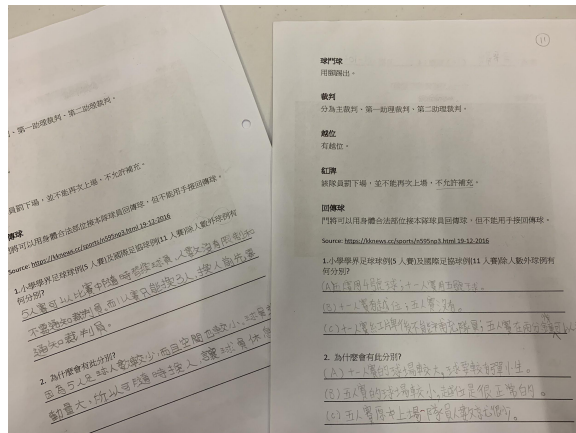 、第一助理裁判、第二助理裁判。
員罰下場，並不能再次上場，不允許補充。
傳球
門將可以用身體合法部位接本隊球員回傳球，但不能用手接回傳球。
Source: https://kknews.cc/sports/n595np3.html 19-12-2016
1.小學學界足球球例(5 人賽)及國際足協球例(11 人賽)除人數外球例有
何分別?
5人賽可以比賽中隨時替換球員，人數沒有限制和
不需通知裁判員，而11人賽只能換3人，換人前先要
通知裁判員。
2. 為什麼會有此分別?
因為5人足球人數較少，而且空間也較小，球員
動量大，所以可隨時換人，讓球員休息
11
球門球
用腳踢出。
裁判
分為主裁判、第一助理裁判、第二助理裁判。
越位
有越位。
紅牌
該隊員罰下場，並不能再次上場，不允許補充。
回傳球
門將可以用身體合法部位接本隊球員回傳球，但不能用手接回傳球。
Source: https://kknews.cc/sports/n595np3.html 19-12-2016
1.小學學界足球球例(5 人賽)及國際足協球例(11 人賽)除人數外球例有
何分別?
(A)
(B)十一人賽有越位；五人賽沒有。
(C)十一人賽紅牌後不能補充隊員；五人賽
2. 為什麼會有此分別?
(A)十一人賽的球場較大，
(B)五人賽的球場較小，越位是很正常的。
(C)五人賽原本上場隊員人數就很少。